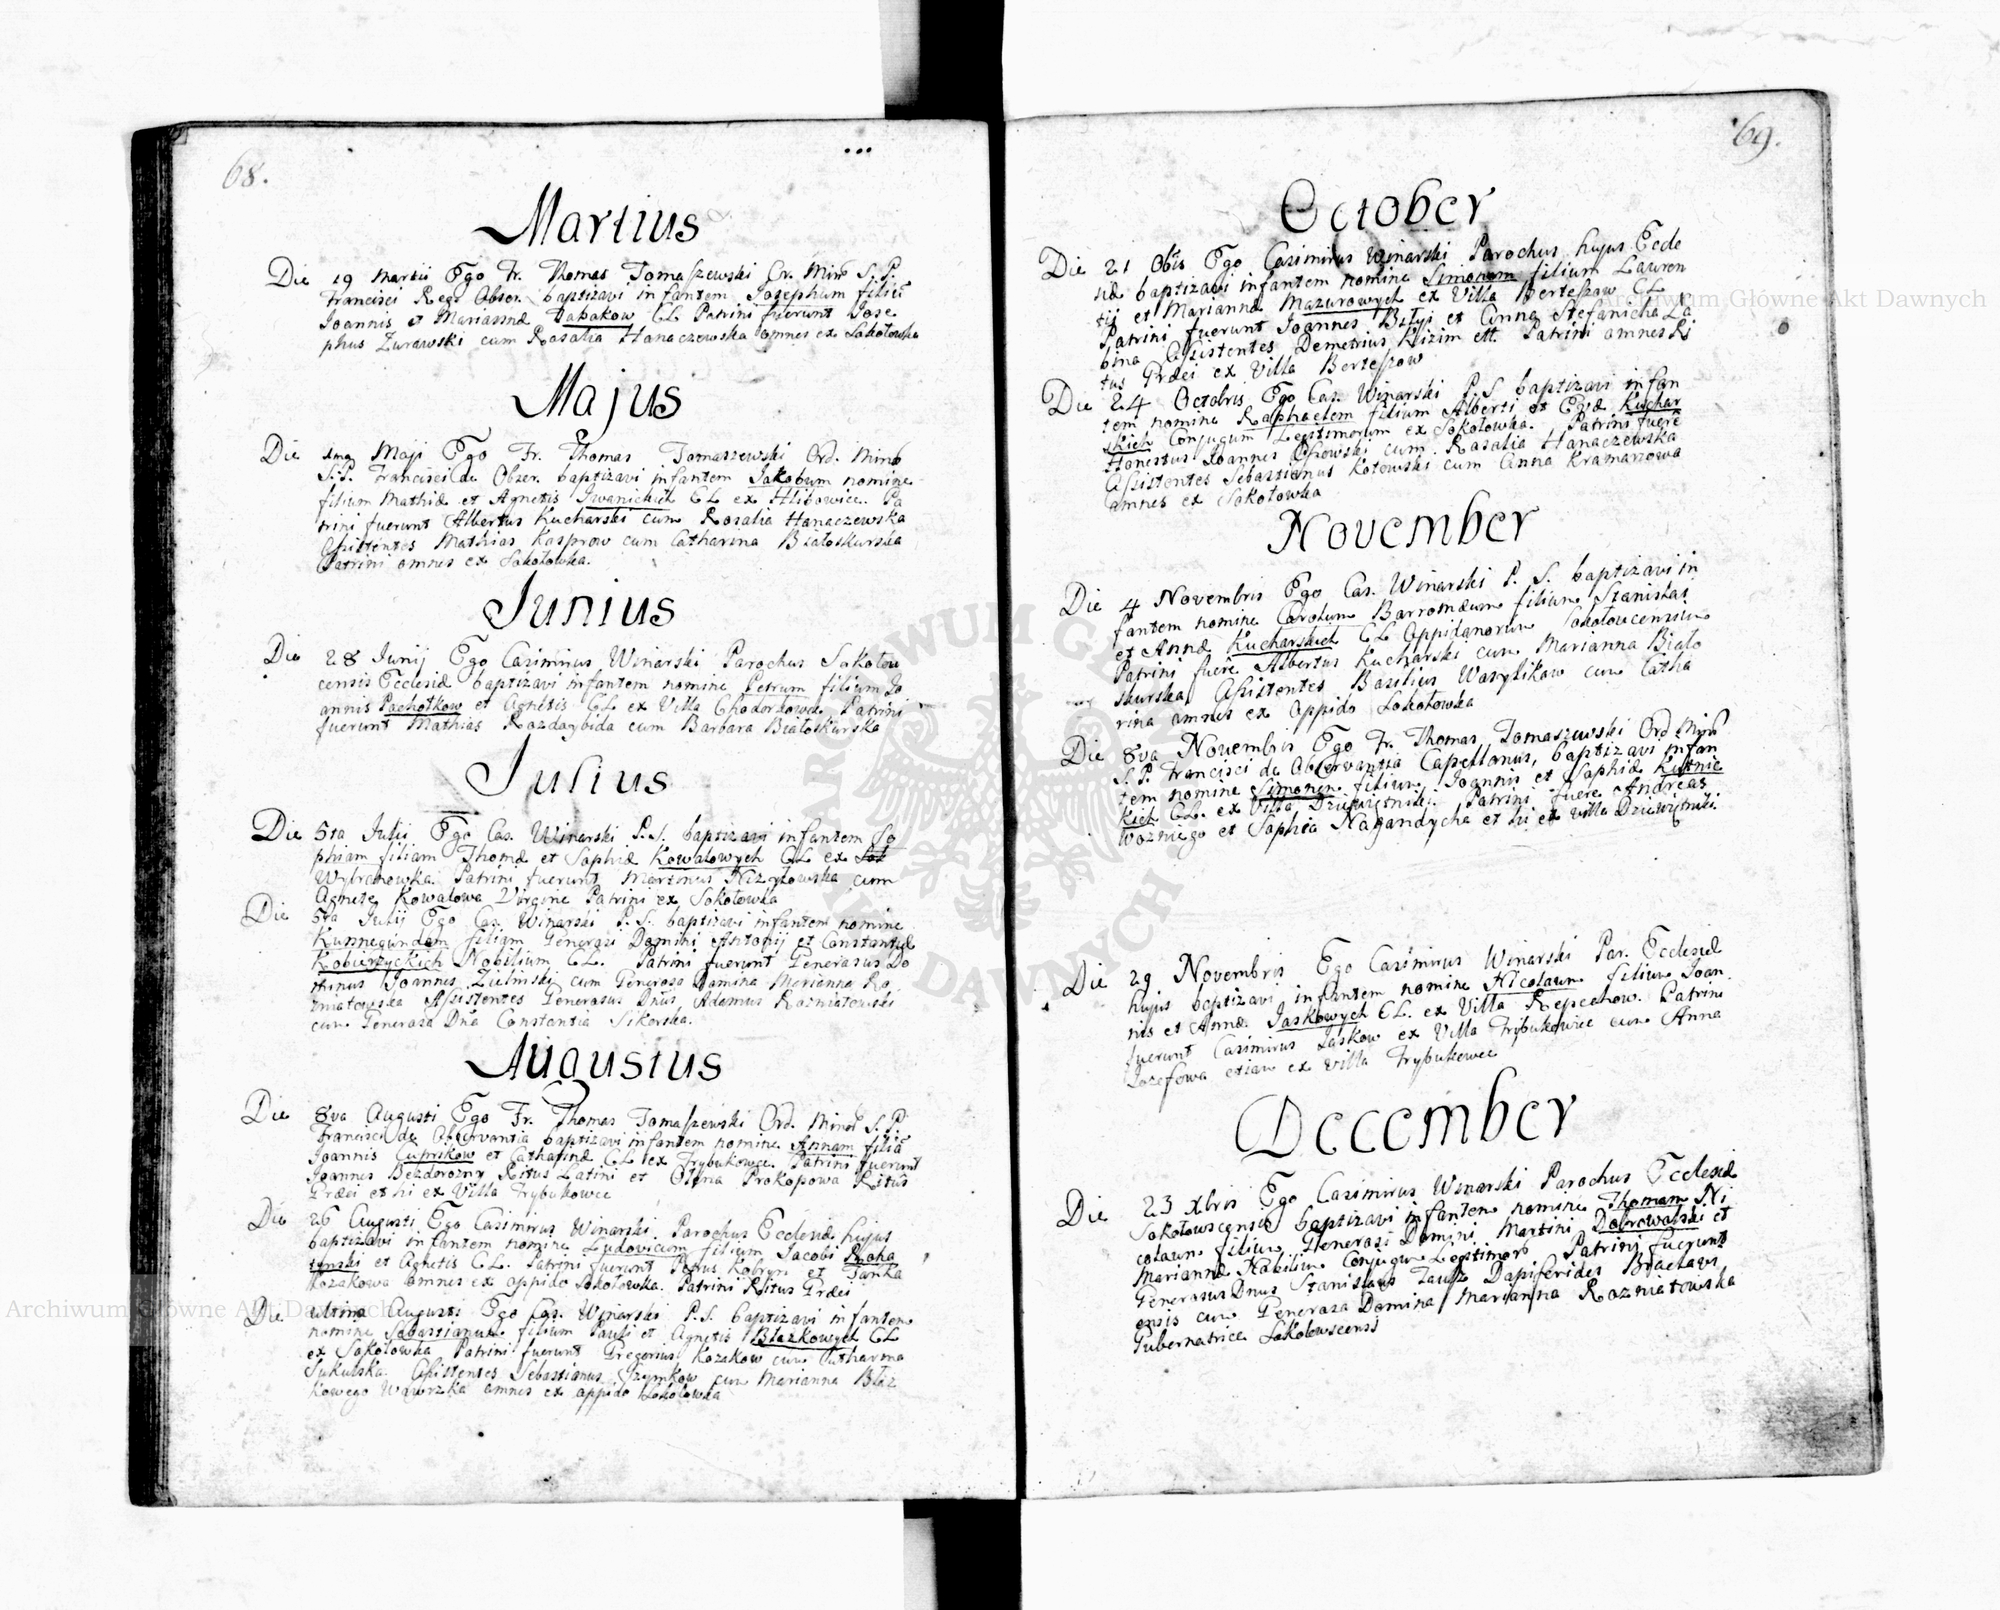 68.
Martius
Die 19 Martii Ego Fr. Thomas Tomaszewski Or. Min. S. P.
Francisci Reg. Obser. baptizavi infantem Josephum filiu
Joannis et Mariannæ Tabakow CL Patrini fuerunt Jose
phus Zurawski cum Rosalia Hanaczewska omnes ex Sokołowka
Majus
Die Maji Ego Fr. Thomas Tomaszewski Ord. Mino
S.P. Francisci de Obser. baptizavi infantem Jakobum nomine
filium Mathiæ et Agnetis Iwanickich CL ex Hlibowice. Pa
trini fuerunt Albertus Kucharski cum Rosalia Hanaczewska
Assistentes Mathias Kasprow cum Catharina Białoskurska
Patrini omnes ex Sokołowka.
Junius
Die 28 Junij Ego Casimirus Winarski Parochus Sokołow
censis Ecclesiæ baptizavi infantem nomine Petrum filium Jo
annis Pachołkow et Agnetis CL ex Villa Chodorkowce Patrini
fuerunt Mathias Rozdaybida cum Barbara Białoskurska
Julius
Die 5ta Julii Ego Cas. Winarski P.S. baptizavi infantem So
phiam filiam Thomæ et Sophiæ Kowalowych CL ex
Wybranowka. Patrini fuerunt Martinus Nizgłowska cum
Agnete Kowalowa Virgine Patrini ex Sokołowka
Die 5ta Julij Ego Cas. Winarski P.S. baptizavi infantem nomine
Kunnegundam filiam Generosi Domini Antonij et Constantiæ
Kobierzyckich Nobilium CL. Patrini fuerunt Generosus Do
minus Joannes Zielinski cum Generosa Domina Marianna Ro
zniatowska Assistentes Generosus Dnus Adamus Rozniatowski
cum Generosa Dna Constantia Sikorska.
Augustus
Die 8va Augusti Ego Fr. Thomas Tomaszewski Ord. Mino S.P.
Francisci de Observantia baptizavi infantem nomine Annam filia
Joannis Cuprikow et Catharinæ CL ex Trybukowce. Patrini fuerunt
Joannes Bezdorozny Ritus Latini et Olena Prokopowa Ritus
Græci et hi ex Villa Trybukowce
Die 26 Augusti Ego Casimirus Winarski Parochus Ecclesiæ hujus
baptizavi infantem nomine Ludovicum filium Jacobi Proha
et Agnetis CL. Patrini fuerunt Petrus Kobryn et Janka
Kozakowa omnes ex oppido Sokołowka. Patrini Ritus Græci
Die ultima Augusti Ego Cas. Winarski P.S. baptizavi infantem
nomine Sebastianum filium Pauli et Agnetis Błazkowych CL
ex Sokołowka Patrini fuerunt Gregorius Kozakow cum Catharina
Sukulska. Assistentes Sebastianus Szymkow cum Marianna Błaz
kowego Wawrzka omnes ex oppido Sokołowka
69.
October
Die 21 Obris Ego Casimirus Winarski Parochus hujus Eccle
siæ baptizavi infantem nomine Simonem filium Lauren
tij et Mariannæ Mazurowych ex Villa Berteszow CL
Patrini fuerunt Joannes Biłyi et Anna Stefanicha La
bina Assistentes Demetrius Hizim Patrini omnes Ri
tus Græci ex Villa Berteszow
Die 24 Octobris Ego Cas. Winarski P.S. baptizavi infan
tem nomine Raphaelem filium Alberti et Evæ Kuchar
skich Conjugum Legitimorum ex Sokołowka. Patrini fuere
Honestus Joannes Osowski cum Rosalia Hanaczewska
Assistentes Sebastianus Kotowski cum Anna Kramarzowa
omnes ex Sokołowka
November
Die 4 Novembris Ego Cas. Winarski P. S. baptizavi in
fantem nomine Carolum Barromæum filium Stanislai
et Annæ Kucharskich CL Oppidanorum Sokołowcensium
Patrini fuere Albertus Kucharski cum Marianna Biało
skurska Assistentes Basilius Wasylikow cum Catha
rina omnes ex Oppido Sokołowka
Die 8va Novembris Ego Fr. Thomas Tomaszewski Ord Mino
S.P. Francisci de Observantia Capellanus, baptizavi infan
tem nomine Simonem filium Joannis et Sophiæ Kutnic
kich CL. ex Villa Dziewiętniki. Patrini fuere Andreas
Wozniego et Sophia Nagandycha et hi ex villa Dziewiętniki.
Die 29 Novembris Ego Casimirus Winarski Par. Ecclesiæ
hujus baptizavi infantem nomine Nicolaum filium Joan
nis et Annæ Jaskowych CL. ex Villa Repechow. Patrini
fuerunt Casimirus Jaskow ex Villa Trybukowiec cum Anna
Jozefowa etiam ex villa Trybukowce
December
Die 23 Xbris Ego Casimirus Winarski Parochus Ecclesiæ
Sokołowscensis baptizavi infantem nomine Thomam Ni
colaum filium Generosi Domini Martini Dobrowolski et
Mariannæ Nobilium Conjugum Legitimoru Patrini fuerunt
Generosus Dnus Stanislaus Dapiferides Braclavi
ensis cum Generosa Domina Marianna Rozniatowska
Gubernatrice Sokołowscensi
Archiwum Główne Akt Dawnych
Archiwum Główne Akt Dawnych
ARCHIWUM GŁÓWNE AKT DAWNYCH